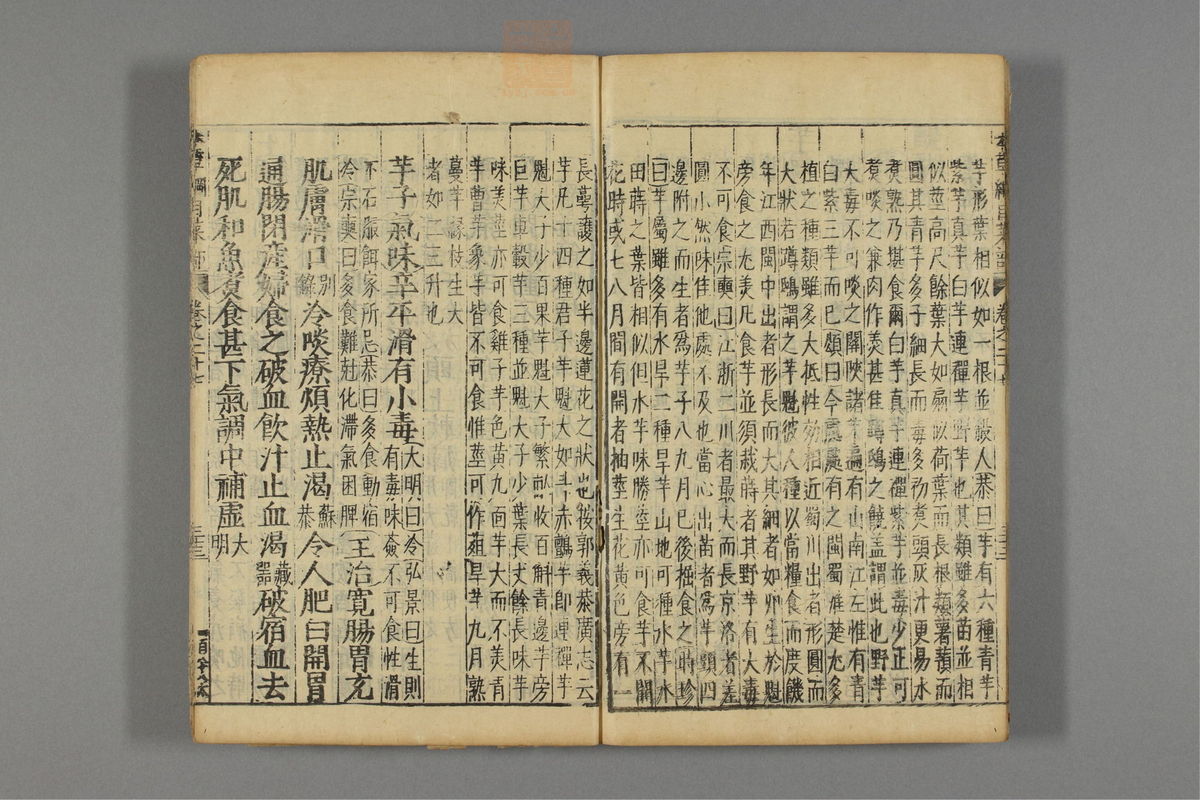 芋形葉相似如一根並殺人恭曰芋有六種青芋
紫芋真芋白芋連禪芋野芋也其類雖多苗並相
似莖高尺餘葉大如扇似荷葉而長根類薯蕷而
圓其青芋多子細長而毒多初煮須灰汁更易水
煮熟乃堪食爾白芋真芋連禪紫芋並毒少正可
煮啖之兼肉作羹甚佳蹲鴟之饒盖謂此也野芋
大毒不可啖之關陝諸芋遍有山南江左惟有青
白紫三芋而已頌曰今處處有之閩蜀淮楚尤多
植之種類雖多大抵性効相近蜀川出者形圓而
大狀若蹲鴟謂之芋魁彼人種以當糧食而度饑
年江西閩中出者形長而大其細者如卵生於魁
旁食之尤美凡食芋並須栽蒔者其野芋有大毒
不可食宗奭曰江浙二川者最大而長京洛者差
圓小然味佳他處不及也當心出苗者為芋頭四
邊附之而生者為芋子八九月已後掘食之時珍
曰芋屬雖多有水旱二種旱芋山地可種水芋水
田蒔之葉皆相似但水芋味勝莖亦可食芋不開
花時或七八月間有開者抽莖生花黃色旁有一
長蕚護之如半邊蓮花之狀也按郭義恭廣志云
芋凡十四種君子芋魁大如斗赤鸇芋即連禪芋
魁大子少百果芋魁大子繁畝收百斛青邊芋旁
巨芋車轂芋三種並魁大子少葉長丈餘長味芋
味美莖亦可食雞子芋色黃九面芋大而不美青
芋曹芋象芋皆不可食惟莖可作葅旱芋九月熟
蔓芋緣枝生大
者如二三升也
芋子氣味辛平滑有小毒大明曰冷弘景曰生則
有毒味薟不可食性滑
下石服餌家所忌恭曰多食動宿
冷宗奭曰多食難尅化滯氣困脾主治寬腸胃充
肌膚滑口別錄冷啖療煩熱止渴蘇恭令人肥白開胃
通腸閉産婦食之破血飲汁止血渴藏器破宿血去
死肌和魚煮食甚下氣調中補虛大明